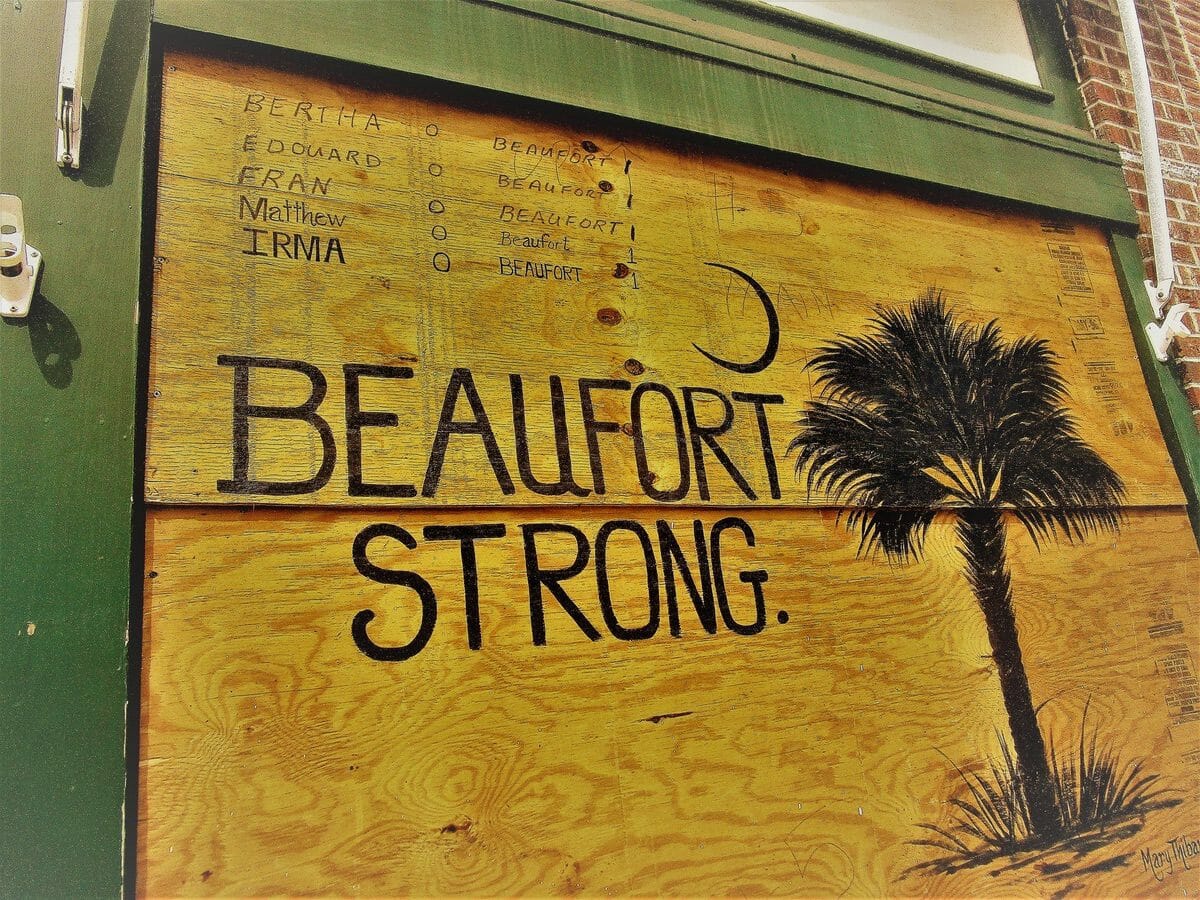 BERTHA 0 BEAUFORT 1
EDOUARD 0 BEAUFORT 1
FRAN 0 BEAUFORT 1
Matthew 0 Beaufort 1
IRMA 0 BEAUFORT 1
BEAUFORT
STRONG.
Mary